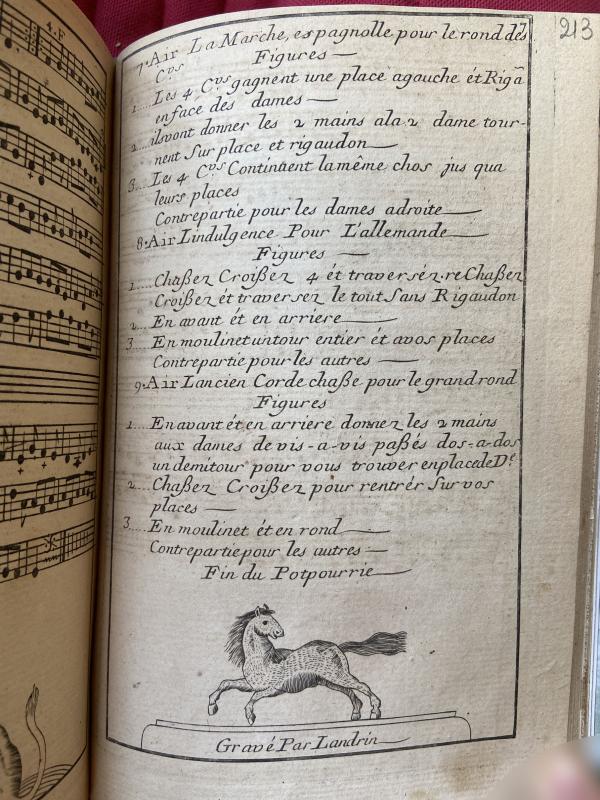 4.F
213
7
7.Air La Marche, espagnolle pour le rond des
Cvs Figures
1....Les 4 Cvs gagnent une place agauche ét Rigã
enface des dames
2....ilsvont donner les 2 mains ala 2 dame tour-
nent Sur place et rigaudon
3...Les 4 Cvs Continüent lamême chos jus qua
leurs places
Contrepartie pour les dames adroite
8.Air Lindulgence Pour L'allemande
Figures
1....Chaßez Croißez 4 ét traversez.re Chaßez
Croißez et traversez le tout Sans Rigaudon
2....En avant ét en arriere
3....En moulinet untour entier ét avos places
Contrepartie pour les autres
9.Air Lancien Corde chaße pour le grand rond
Figures
1....Enavant ét en arriere donnez les 2 mains
aux dames de vis-a-vis paßés dos-a-dos
un demitour pour vous trouver enplacede De
2....Chaßez Croißez pour rentrér Sur vos
places
3....En moulinet ét en rond
Contrepartie pour les autres
Fin du Potpourrie
Gravé Par Landrin